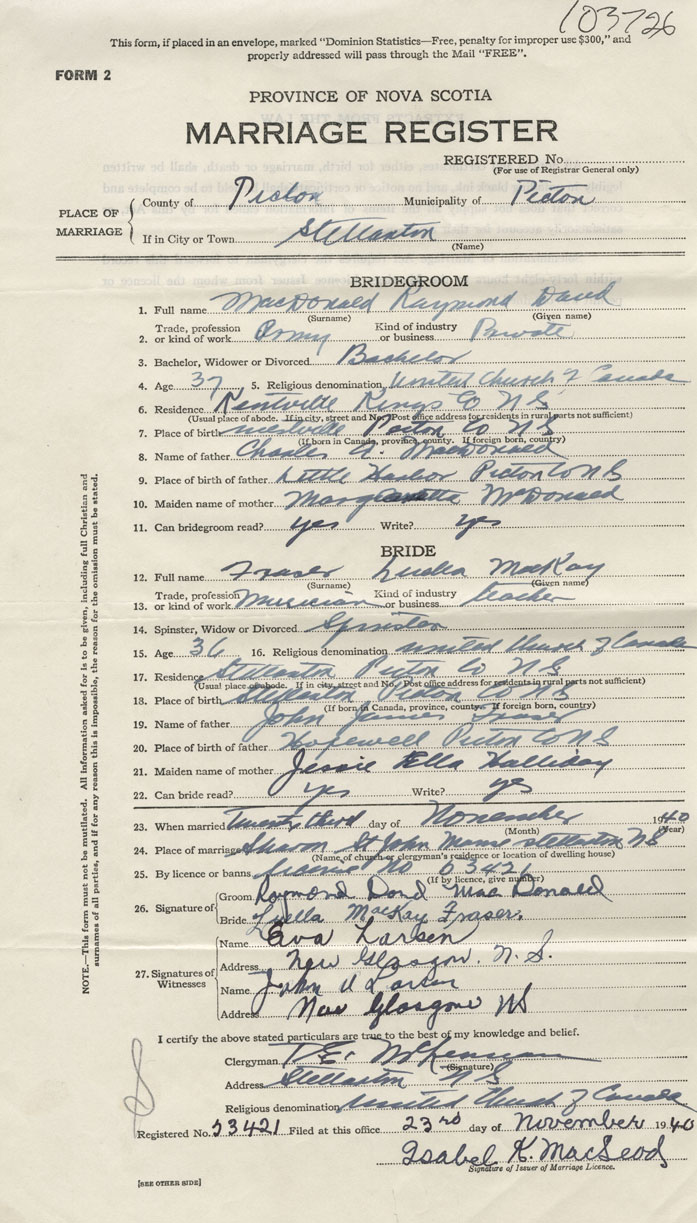 103726
This form, if placed in an envelope, marked "Dominion Statistics—Free, penalty for improper use $300," and
properly addressed will pass through the Mail "FREE".
FORM 2
PROVINCE OF NOVA SCOTIA
MARRIAGE REGISTER
REGISTERED No.
(For use of Registrar General only)
PLACE OF MARRIAGE
County of Pictou Municipality of Pictou
If in City or Town Stellarton
(Name)
BRIDEGROOM
1. Full name MacDonald Raymond David
(Surname) (Given name)
2. Trade, profession or kind of work Army Kind of industry or business Private
3. Bachelor, Widower or Divorced Bachelor
4. Age 37 5. Religious denomination United Church of Canada
6. Residence Kentville Kings Co N S
(Usual place of abode. If in city, street and No. Post office address for residents in rural parts not sufficient)
7. Place of birth Westville Pictou Co N S
(If born in Canada, province, county. If foreign born, country)
8. Name of father Charles A. MacDonald
9. Place of birth of father Little Harbor Pictou Co N S
10. Maiden name of mother McDonald
11. Can bridegroom read? yes Write? yes
BRIDE
12. Full name Fraser Luella MacKay
(Surname) (Given name)
13. Trade, profession or kind of work Musician Kind of industry or business teacher
14. Spinster, Widow or Divorced Spinster
15. Age 36 16. Religious denomination United Church of Canada
17. Residence Stellarton Pictou Co N S
(Usual place of abode. If in city, street and No. Post office address for residents in rural parts not sufficient)
18. Place of birth Stellarton Pictou Co N S
(If born in Canada, province, county. If foreign born, country)
19. Name of father John James Fraser
20. Place of birth of father Hopewell Pictou Co N S
21. Maiden name of mother Jessie Ella Halliday
22. Can bride read? yes Write? yes
23. When married Twenty third day of November 1940
(Month) (Year)
24. Place of marriage Sharon St John Manse Stellarton NS
(Name of church or clergyman's residence or location of dwelling house)
25. By licence or banns licence No
(If by licence, give number)
26. Signature of
Groom Raymond David MacDonald
Bride Luella MacKay Fraser.
27. Signatures of Witnesses
Name Eva Larsen
Address New Glasgow. N. S.
Name John Larsen
Address New Glasgow NS
I certify the above stated particulars are true to the best of my knowledge and belief.
Clergyman
(Signature)
Address Stellarton N S
Religious denomination United Church of Canada
Registered No. 53421 Filed at this office 23rd day of November 1940
Isabel K. MacLeod
Signature of Issuer of Marriage Licence.
[SEE OTHER SIDE]
NOTE.—This form must not be mutilated. All information asked for is to be given, including full Christian and
surnames of all parties, and if for any reason this is impossible, the reason for the omission must be stated.